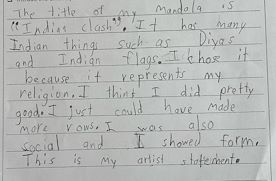 The title of my Mandala is
"Indias clash". It has many
Indian things such as Diyas
and Indian flags. I chose it
because it represents my
religion. I think I did pretty
good. I just could have made
more rows. I was also
social and I showed form.
This is my artist statement.